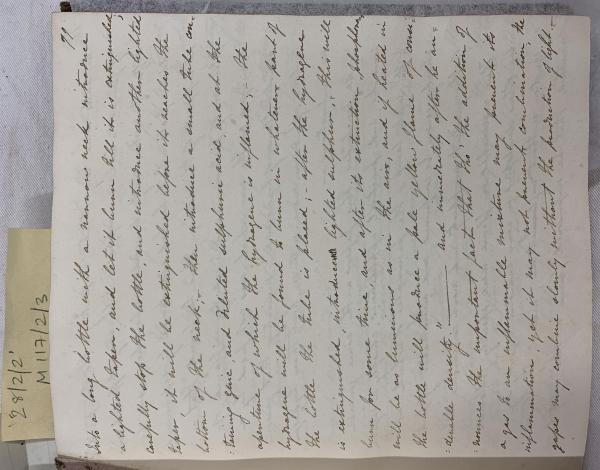 99
Into a long bottle with a narrow neck introduce
a lighted Taper, and let it burn till it is extinguished,
carefully stop the bottle, and introduce another lighted
Taper it will be extinguished before it reaches the
bottom of the neck; then introduce a small tube con=
:taining zinc and diluted sulphuric acid and at the
aperture of which the hydrogene is inflamed; - the
hydrogene will be found to burn in whatever part of
the bottle the tube is placed; - after the hydrogene
is extinguished introduce lighted sulphur; this will
burn for some time, and after its extinction phosphorus
will be as luminous as in the air, and if heated in
the bottle will produce a pale yellow flame of consi:
:derable density." ——— and immediately after he an:
:nounces the important fact that tho' the addition of
a gas to an inflammable mixture may prevent its
inflammation, yet it may not prevent combination, the
gases may combine slowly without the production of light.-
'28/2/2'
M 117/2/3